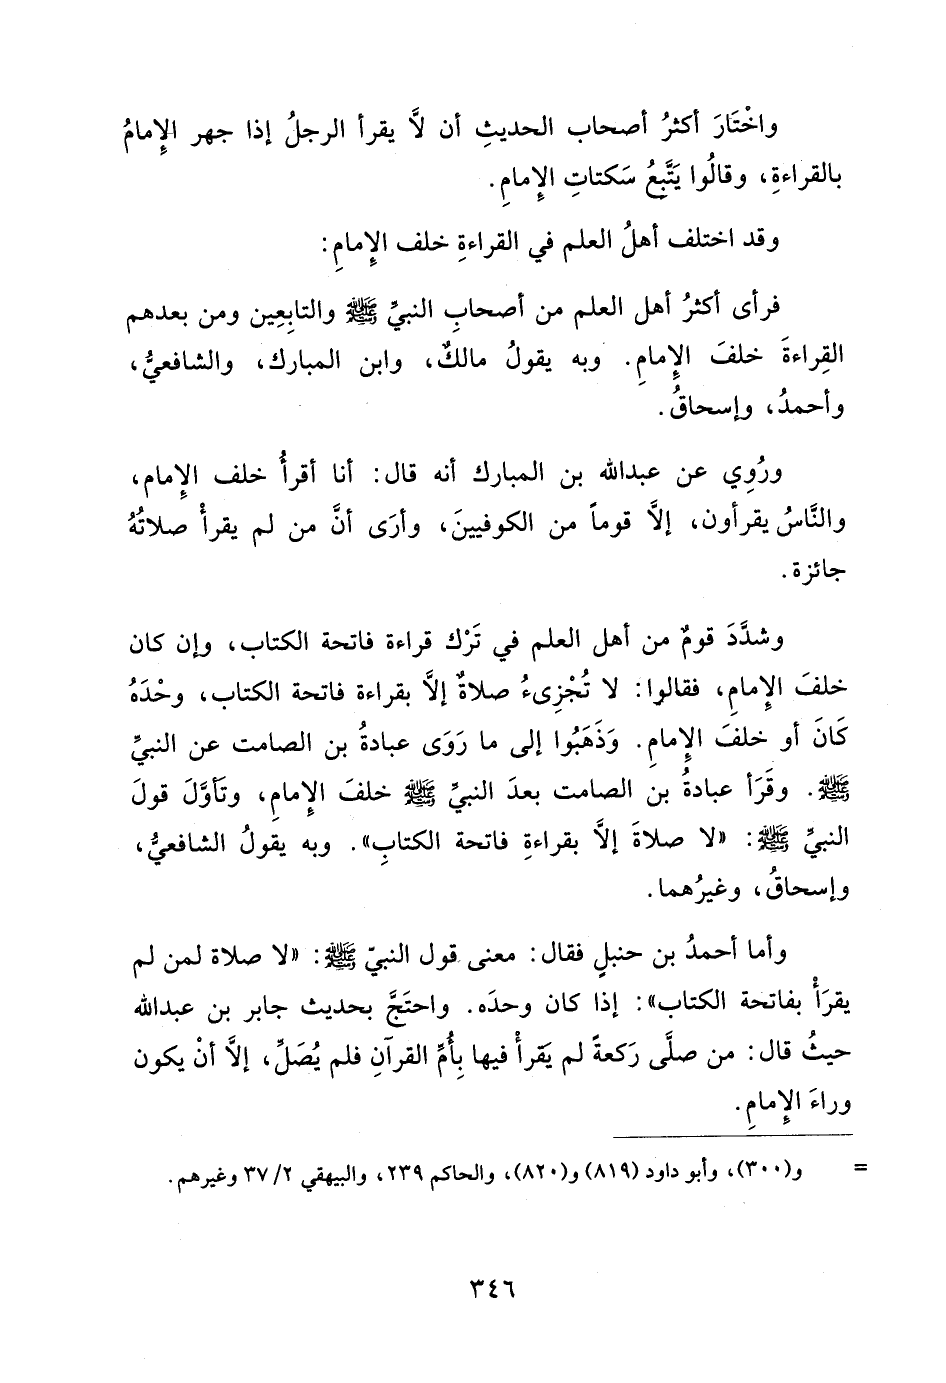 واخْتَارَ أكثرُ أصحاب الحديثِ أن لَّا يقرأ الرجلُ إذا جهر الإِمامُ
بالقراءةِ، وقالُوا يَتَّبِعُ سَكتاتِ الإِمامِ.
وقد اختلف أهلُ العلم في القراءةِ خلف الإِمامِ:
فرأى أكثرُ أهل العلم من أصحابِ النبيِّ ﷺ والتابِعِين ومن بعدهم
القِراءةَ خلفَ الإِمامِ. وبه يقولُ مالكٌ، وابن المبارك، والشافعيُّ،
وأحمدُ، وإسحاقُ.
ورُوِي عن عبدالله بن المبارك أنه قال: أنا أقرأُ خلف الإِمام،
والنَّاسُ يقرأون، إلَّا قوماً من الكوفيينَ، وأرَى أنَّ من لم يقرأْ صلاتُهُ
جائزة.
وشدَّدَ قومٌ من أهل العلم في تَرْك قراءة فاتحة الكتاب، وإن كان
خلفَ الإِمامِ، فقالوا: لا تُجْزِىءُ صلاةٌ إلَّا بقراءة فاتحة الكتاب، وحْدَهُ
كَانَ أو خلفَ الإِمامِ. وَذَهَبُوا إلى ما رَوَى عبادةُ بن الصامت عن النبيِّ
ﷺ. وقَرَأ عبادةُ بن الصامت بعدَ النبيِّ ﷺ خلفَ الإِمامِ، وتَأوَّلَ قولَ
النبيِّ ﷺ: «لا صلاةَ إلَّا بقراءةِ فاتحة الكتابِ». وبه يقولُ الشافعيُّ،
وإسحاقُ، وغيرُهما.
وأما أحمدُ بن حنبلٍ فقال: معنى قول النبيّ ﷺ: «لا صلاة لمن لم
يقرَأْ بفاتحة الكتاب»: إذا كان وحدَه. واحتَجَّ بحديث جابر بن عبدالله
حيثُ قال: من صلَّى رَكعةً لم يَقرأْ فيها بِأُمِّ القرآنِ فلم يُصَلِّ، إلَّا أنْ يكون
وراءَ الإِمامِ.
= و(٣٠٠)، وأبو داود (٨١٩) و(٨٢٠)، والحاكم ٢٣٩، والبيهقي ٢/ ٣٧ وغيرهم.
٣٤٦